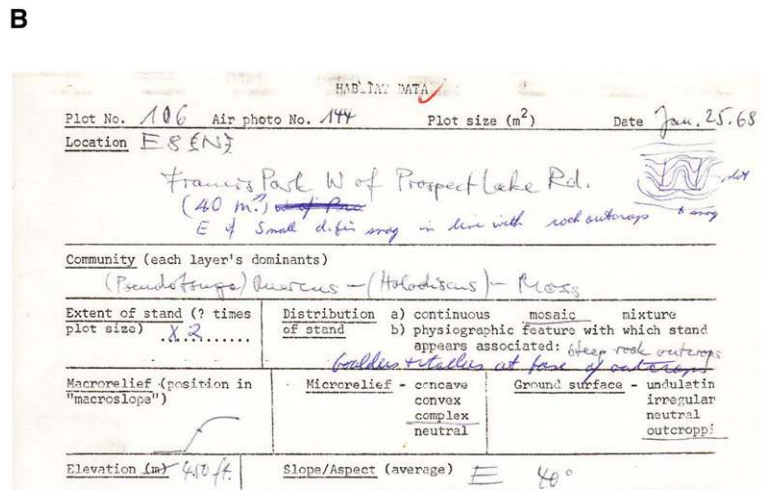 B
HABITAT DATA
Plot No. 106 Air photo No. 144 Plot size (m²) Date Jan. 25. 68
Location E8 {N}
Francis Park W of Prospect Lake Rd.
(40 m.?)
E of Small d. fir snag in line with rock outcrops
plot
snag
Community (each layer's dominants)
(Pseudotsuga) Quercus - (Holodiscus) - Moss
Extent of stand (? times plot size) X 2
Distribution of stand a) continuous mosaic mixture
b) physiographic feature with which stand appears associated: steep rock outcrops
boulders + tallus at base of outcrops
Macrorelief (position in "macroslope")
Microrelief - concave
convex
complex
neutral
Ground surface - undulatin
irregular
neutral
outcroppi
Elevation (m) 450 ft.
Slope/Aspect (average) E 40°